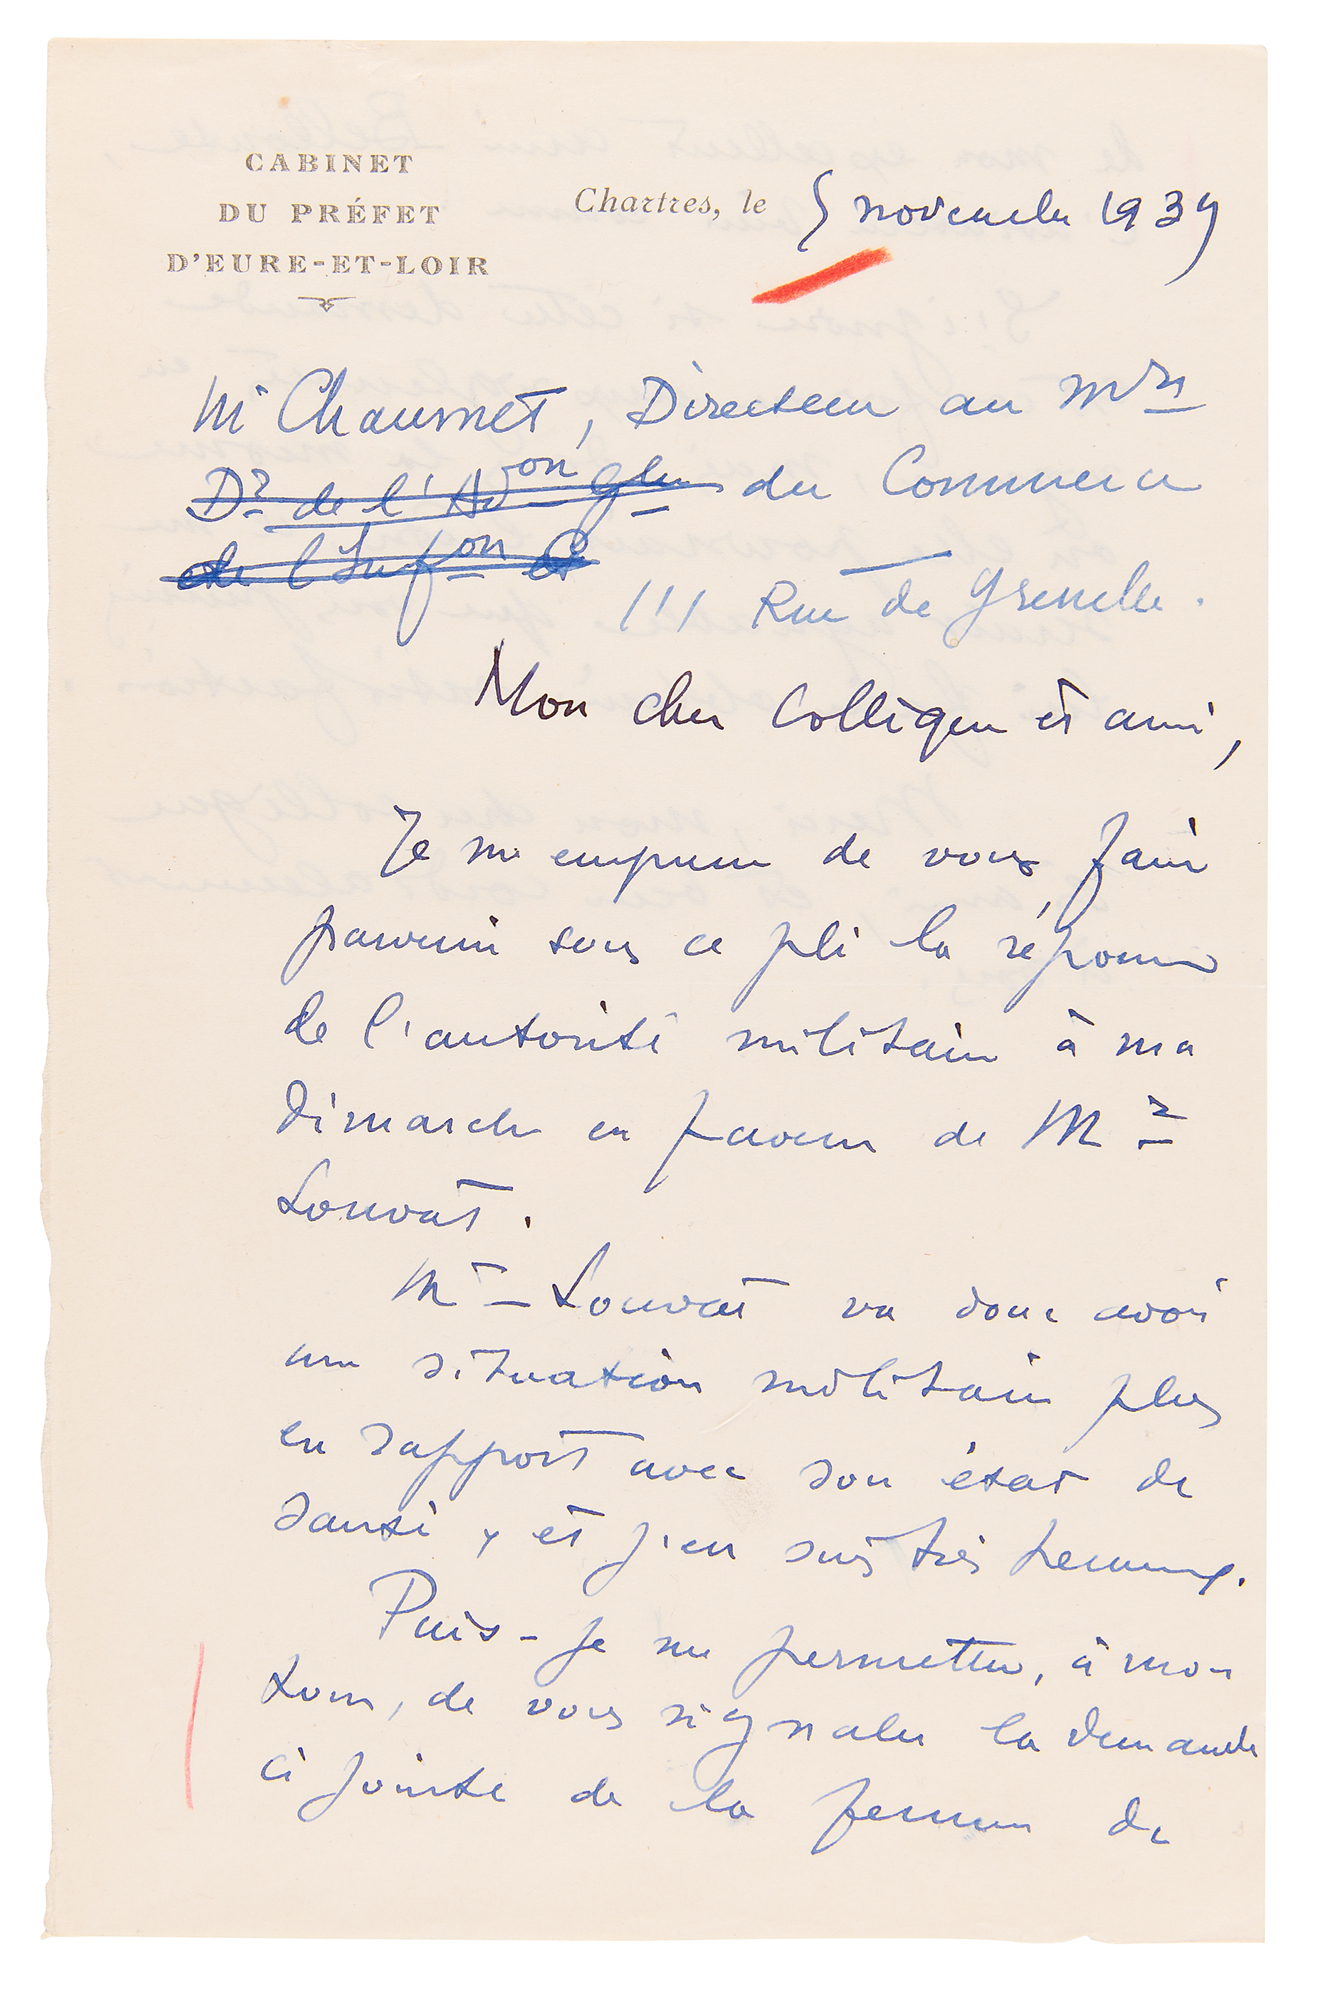 CABINET
DU PRÉFET
D'EURE-ET-LOIR
Chartres, le 5 novembre 1939
Mr Chaumet, Directeur au Mre
Dr de l'Adon Gle du Commerce
de l'Infon et
111 Rue de Grenelle.
Mon cher Collègue et ami,
Je m'empresse de vous faire
parvenir sous ce pli la réponse
de l'autorité militaire à ma
démarche en faveur de Mr
Louvat.
Mr Louvat va donc avoir
une situation militaire plus
en rapport avec son état de
santé, et j'en suis très heureux.
Puis-je me permettre, à mon
tour, de vous signaler la demande
ci jointe de la femme de